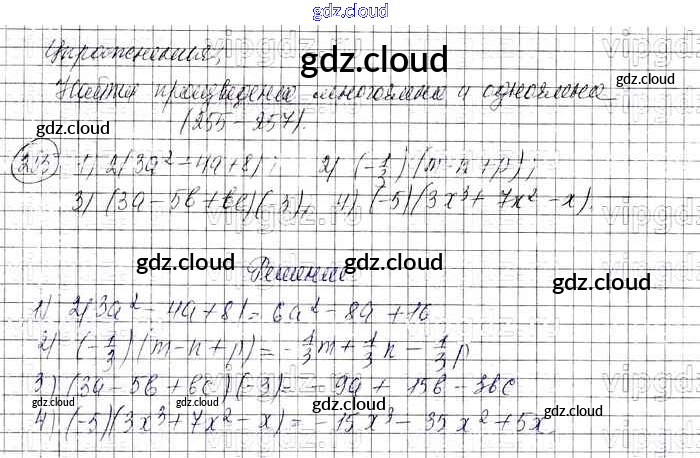 gdz.cloud
Упражнения,
gdz.cloud
Найти произведение многочлена и одночлена
gdz.cloud
(255 - 257).
gdz.cloud gdz.cloud
255 1) 2(3a² - 4a + 8); 2) (-1/3) (m - n + p);
3) (3a - 5b + bc)(-3), 4) (-5)(3x³ + 7x² - x).
gdz.cloud gdz.cloud gdz.cloud
Решение
1) 2(3a² - 4a + 8) = 6a² - 8a + 16
2) (-1/3)(m - n + p) = -1/3 m + 1/3 n - 1/3 p
3) (3a - 5b + bc)(-3) = -9a + 15b - 3bc
gdz.cloud gdz.cloud gdz.cloud gdz.cloud
4) (-5)(3x³ + 7x² - x) = -15x³ - 35x² + 5x